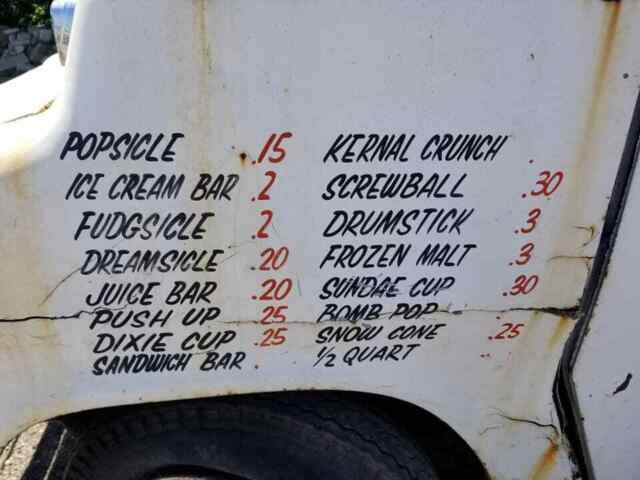 POPSICLE .15
ICE CREAM BAR .2
FUDGSICLE .2
DREAMSICLE .20
JUICE BAR .20
PUSH UP .25
DIXIE CUP .25
SANDWICH BAR .
KERNAL CRUNCH .
SCREWBALL .30
DRUMSTICK .3
FROZEN MALT .3
SUNDAE CUP .30
BOMB POP
SNOW CONE .25
1/2 QUART ..